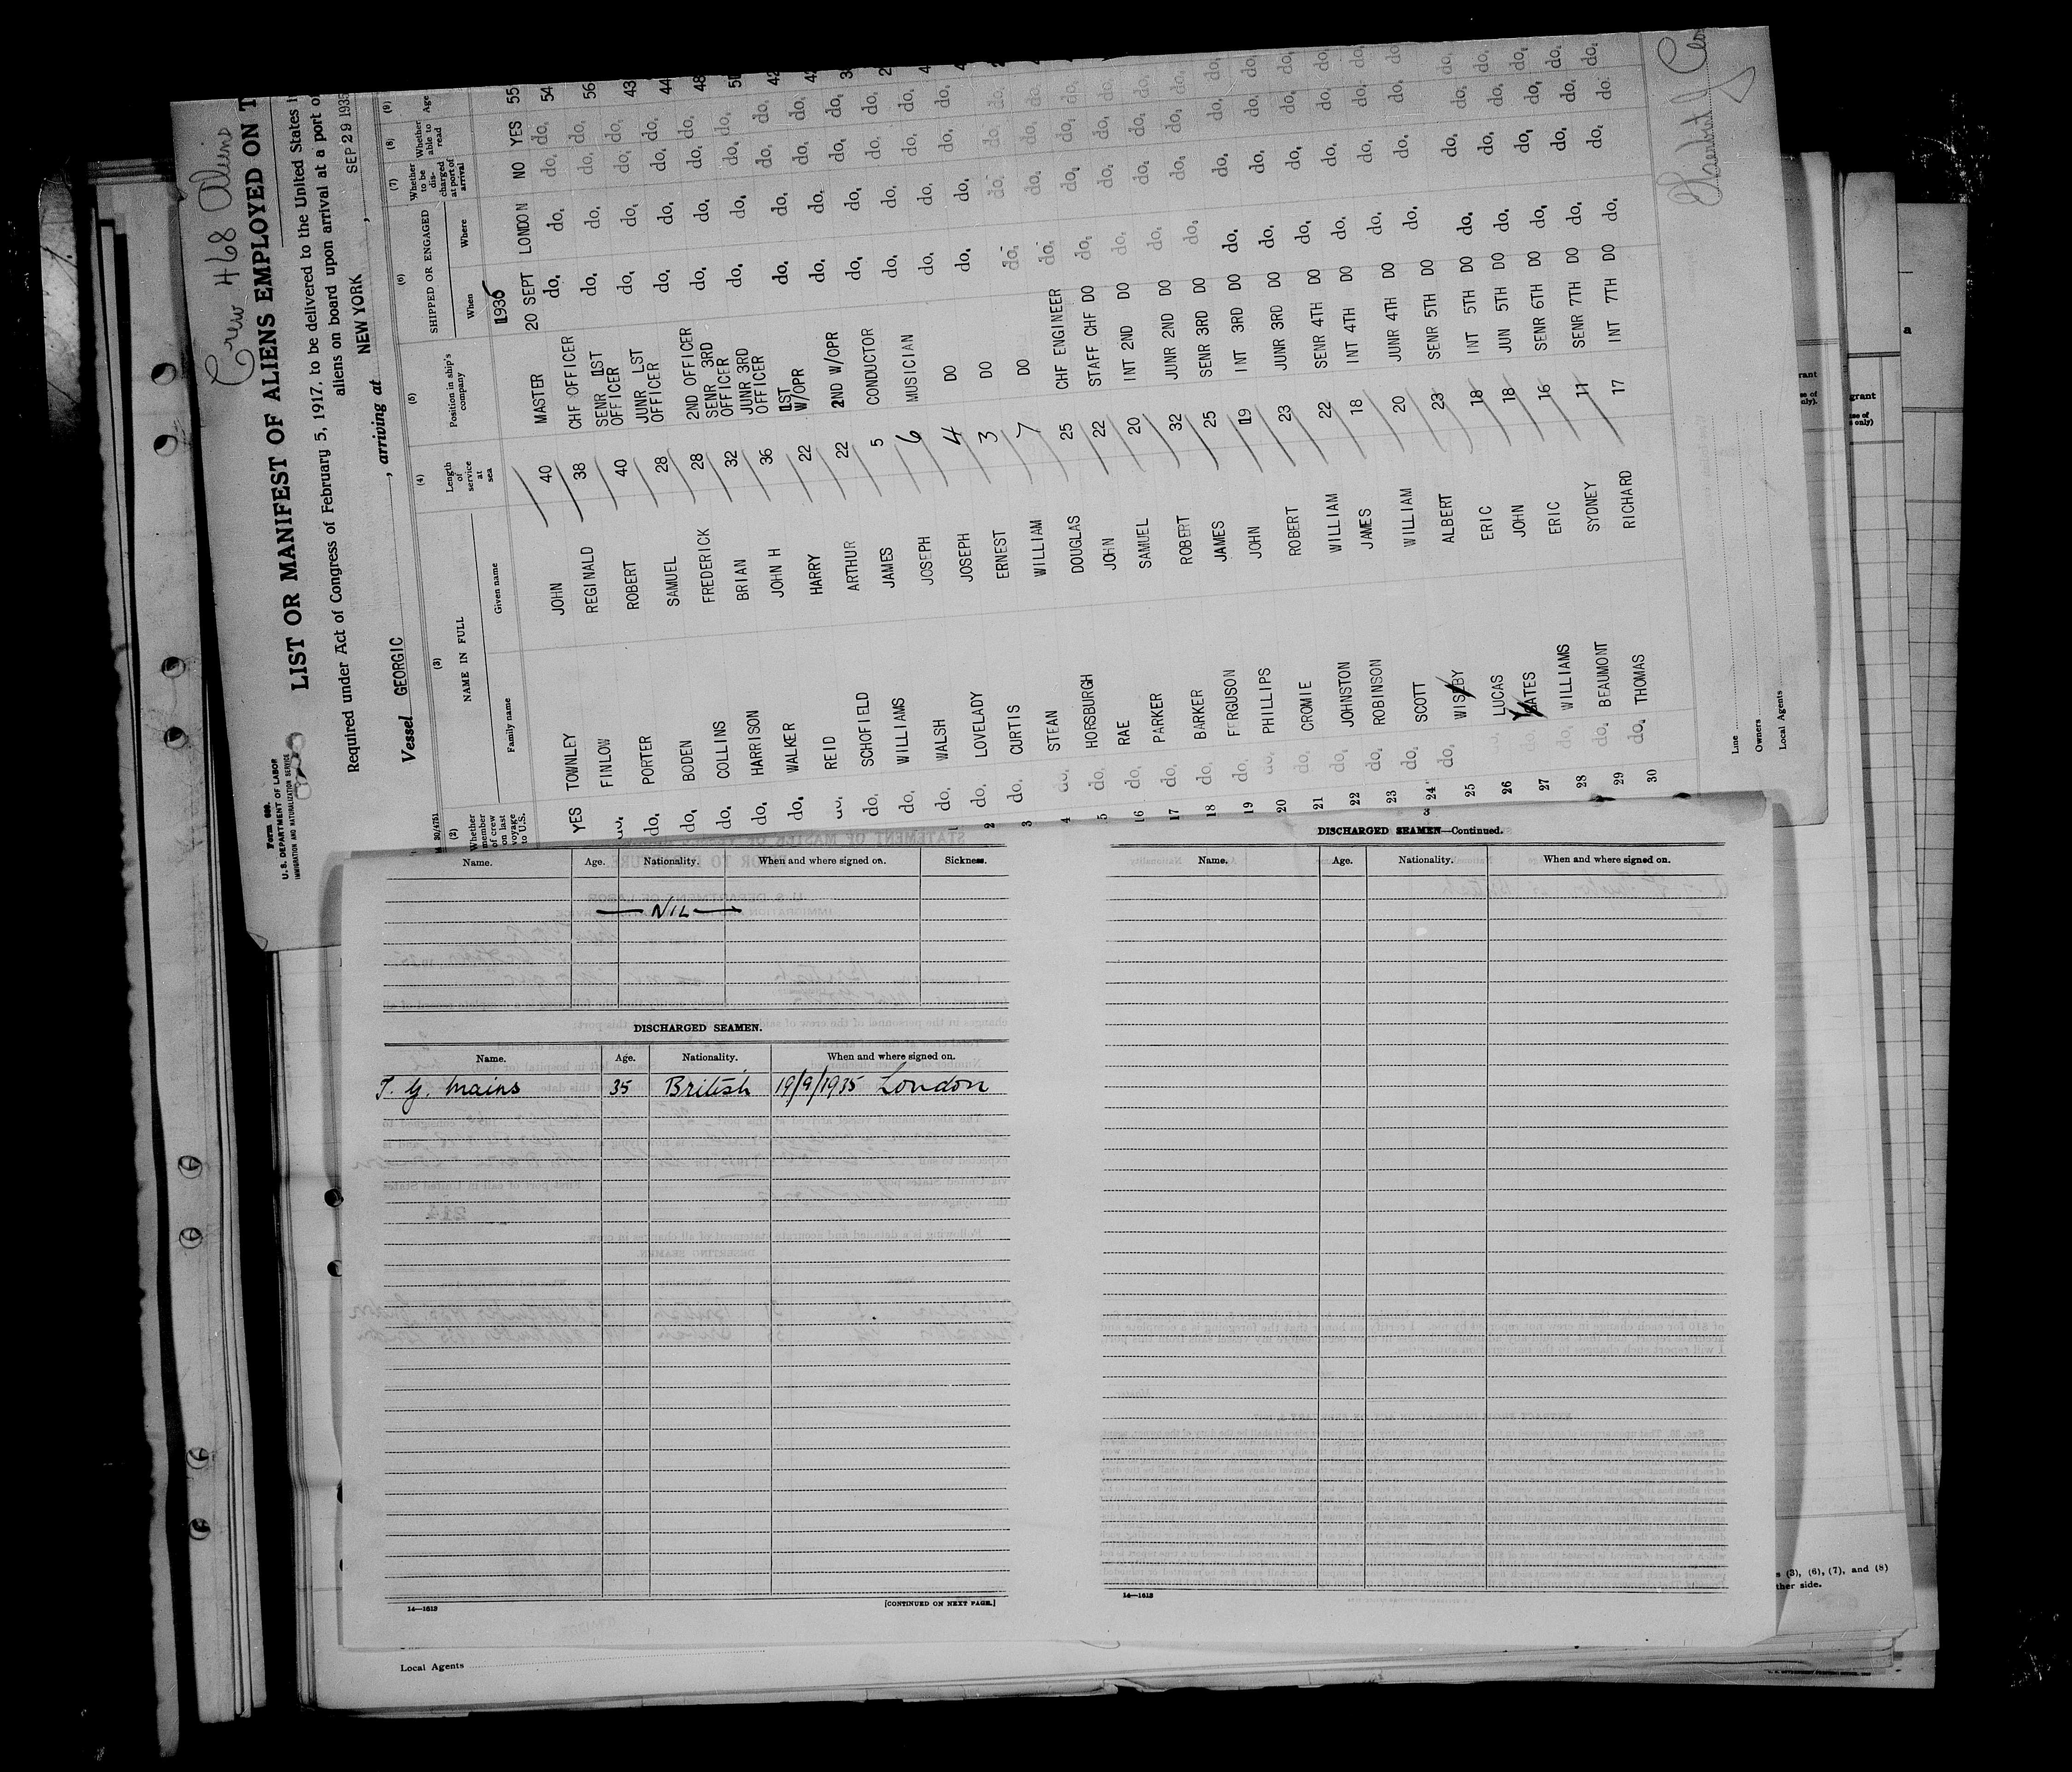 Crew 468 Aliens
Form 689.
U. S. DEPARTMENT OF LABOR
IMMIGRATION AND NATURALIZATION SERVICE
LIST OR MANIFEST OF ALIENS EMPLOYED ON T
Required under Act of Congress of February 5, 1917, to be delivered to the United States i
aliens on board upon arrival at a port o
Vessel GEORGIC, arriving at NEW YORK, SEP 29 1935
(2) (3) (4) (5) (6) (7) (8) (9)
Whether member of crew on last voyage to U.S.
NAME IN FULL
Family name Given name
Length of service at sea
Position in ship's company
SHIPPED OR ENGAGED
When Where
Whether to be discharged at port of arrival
Whether able to read
Age
1935
YES TOWNLEY JOHN 40 MASTER 20 SEPT LONDON NO YES 55
do. FINLOW REGINALD 38 CHF OFFICER do. do. do. do. 54
do. PORTER ROBERT 40 SENR 1ST OFFICER do. do. do. do. 56
do. BODEN SAMUEL 28 JUNR 1ST OFFICER do. do. do. do. 43
do. COLLINS FREDERICK 28 2ND OFFICER do. do. do. do. 44
do. HARRISON BRIAN 32 SENR 3RD OFFICER do. do. do. do. 48
do. WALKER JOHN H 36 JUNR 3RD OFFICER do. do. do. do.
do. REID HARRY 22 1ST W/OPR do. do. do. do.
do. SCHOFIELD ARTHUR 22 2ND W/OPR do. do. do. do.
do. WILLIAMS JAMES 5 CONDUCTOR do. do. do. do.
do. WALSH JOSEPH 6 MUSICIAN do. do. do. do.
2 do. LOVELADY JOSEPH 4 DO do. do. do. do.
3 do. CURTIS ERNEST 3 DO do. do. do. do.
4 do. STEAN WILLIAM 7 DO do. do. do. do.
5 do. HORSBURGH DOUGLAS 25 CHF ENGINEER do. do. do. do.
16 do. RAE JOHN 22 STAFF CHF DO do. do. do. do.
17 do. PARKER SAMUEL 20 INT 2ND DO do. do. do. do.
18 do. BARKER ROBERT 32 JUNR 2ND DO do. do. do. do.
19 do. FERGUSON JAMES 25 SENR 3RD DO do. do. do. do.
20 do. PHILLIPS JOHN 19 INT 3RD DO do. do. do. do.
21 do. CROMIE ROBERT 23 JUNR 3RD DO do. do. do. do.
22 do. JOHNSTON WILLIAM 22 SENR 4TH DO do. do. do. do.
23 do. ROBINSON JAMES 18 INT 4TH DO do. do. do. do.
24 do. SCOTT WILLIAM 20 JUNR 4TH DO do. do. do. do.
25 do. WISEBY ALBERT 23 SENR 5TH DO
26 LUCAS ERIC 18 INT 5TH DO do. do. do. do.
27 do. YATES JOHN 18 JUN 5TH DO do. do. do. do.
28 do. WILLIAMS ERIC 16 SENR 6TH DO do. do. do. do.
29 do. BEAUMONT SYDNEY 11 SENR 7TH DO do. do. do. do.
30 do. THOMAS RICHARD 17 INT 7TH DO do. do. do. do.
Line
Owners
Local Agents
Name. Age. Nationality. When and where signed on. Sickness.
— NIL —
DISCHARGED SEAMEN.
Name. Age. Nationality. When and where signed on.
T. G. Mains 35 British 19/9/1935 London
14—1613 [CONTINUED ON NEXT PAGE.]
DISCHARGED SEAMEN—Continued.
Name. Age. Nationality. When and where signed on.
14—1613
Local Agents
(3), (6), (7), and (8)
ther side.